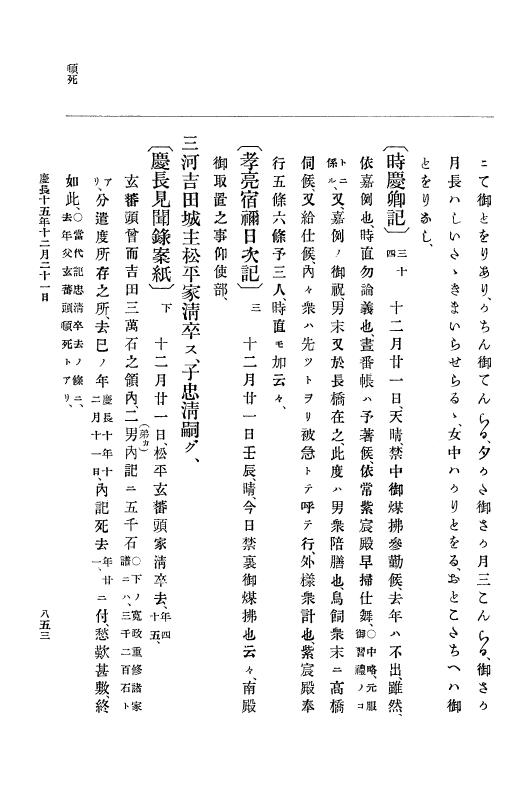 こて御とをりあり、うちん御てんらる、夕かさ御さか月三こんらる、御さか
月長ハしいさゝきまいらせらるゝ、女中ハかりとをる、おとこさちへハ御
とをりなし、
〔時慶卿記〕三十四　十二月廿一日、天晴、禁中御煤拂參勤候、去年ハ不出、雖然、
依嘉例也、時直勿論義也、晝番帳ハ予著候、依常紫宸殿早掃仕舞、○中略、元服御習禮ノコ
トニ係ル、又嘉例ノ御祝、男末又於長橋在之、此度ハ男衆陪膳也、鳥飼衆末ニ高橋
伺候、又給仕候、內々衆ハ先ツトヲリ被急トテ呼テ行、外樣衆計也、紫宸殿奉
行五條六條予三人、時直モ加云々、
〔孝亮宿禰日次記〕三　十二月廿一日壬辰、晴、今日禁裏御煤拂也云々、南殿
御取置之事仰使部、
三河吉田城主松平家淸卒ス、子忠淸嗣グ、
〔慶長見聞錄案紙〕下　十二月廿一日、松平玄蕃頭家淸卒去、年四十五、
玄蕃頭曾而吉田三萬石之領內、二男(弟カ)內記ニ五千石○下ノ寬政重修諸家譜ニハ、三千二百石ト
アリ、分遣度所存之所、去巳ノ年慶長十年十二月十一日、內記死去年廿一、ニ付、愁歎甚敷、終
如此、○當代記忠淸卒去ノ條ニ、去年父玄蕃頭頓死トアリ、
頓死
慶長十五年十二月二十一日
八五三